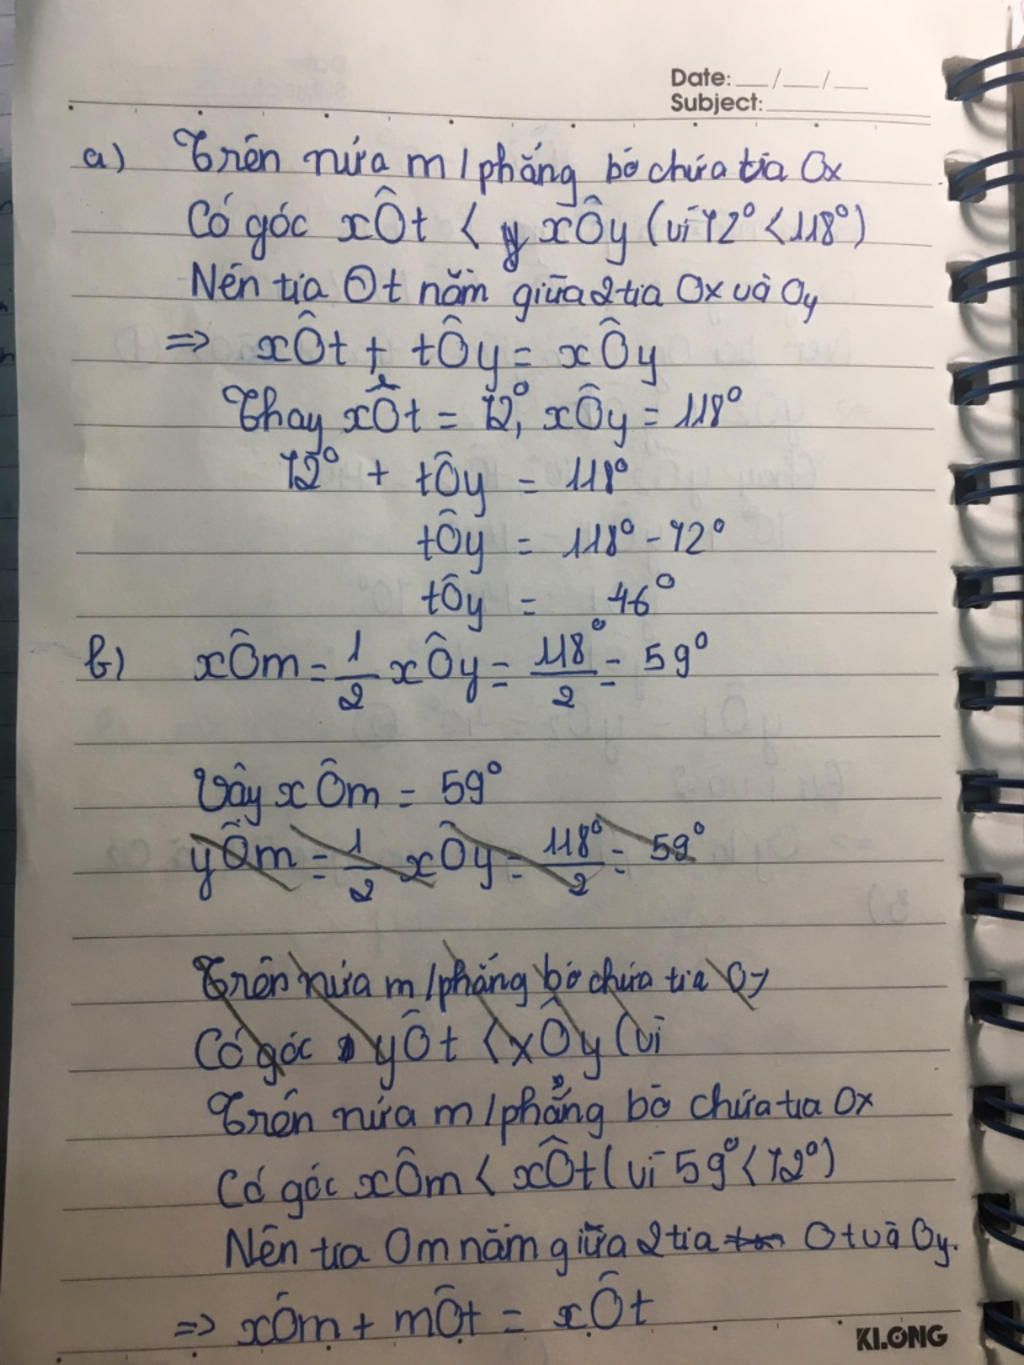 Date: __/__/__
Subject:
a) Trên nửa m/phẳng bờ chứa tia Ox
Có góc xÔt < xÔy (vì 72° < 118°)
Nên tia Ot nằm giữa 2 tia Ox và Oy
=> xÔt + tÔy = xÔy
Thay xÔt = 72°, xÔy = 118°
72° + tÔy = 118°
tÔy = 118° - 72°
tÔy = 46°
b) xÔm = 1/2 xÔy = 118°/2 = 59°
Vậy xÔm = 59°
yÔm = 1/2 xÔy = 118°/2 = 59°
Trên nửa m/phẳng bờ chứa tia Oy
Có góc yÔt < xÔy (vì
Trên nửa m/phẳng bờ chứa tia Ox
Có góc xÔm < xÔt (vì 59° < 72°)
Nên tia Om nằm giữa 2 tia Ot và Oy.
=> xÔm + mÔt = xÔt
KLONG